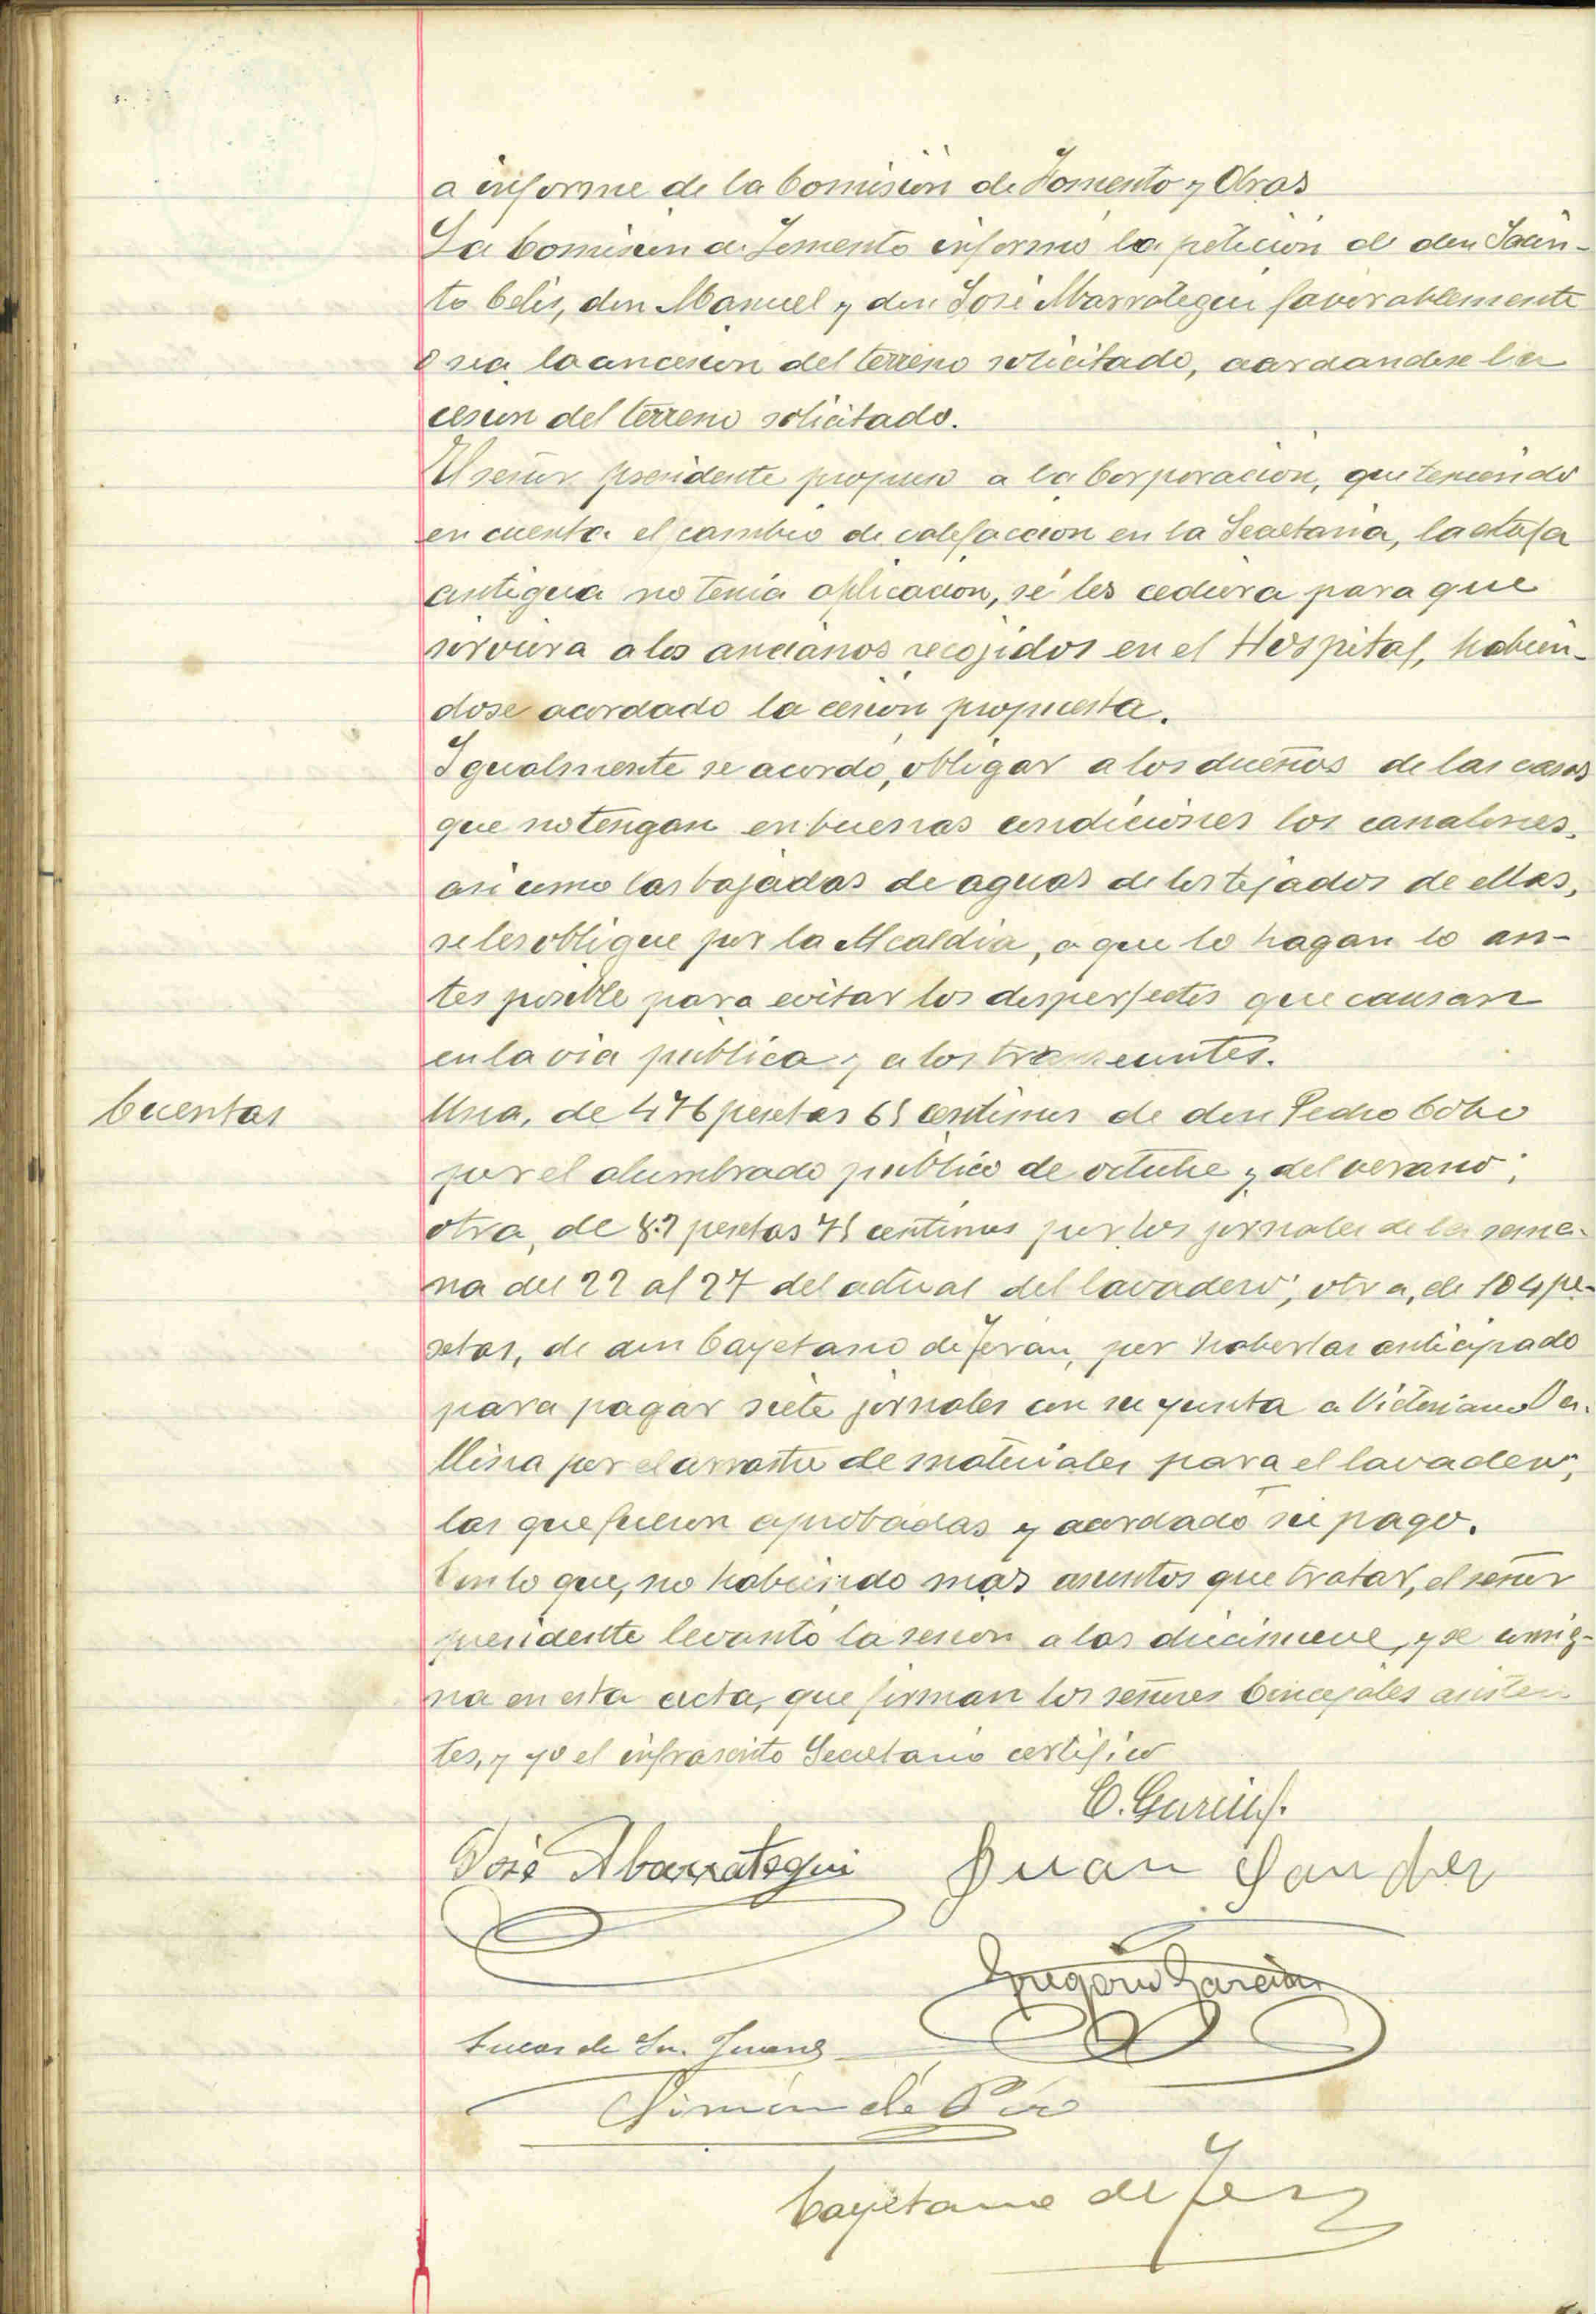 a informe de la Comisión de Fomento y Obras
La Comisión de Fomento informó la petición de don Jacin-
to Celis, don Manuel y don José Abarrategui favorablemente
o sea la concesion del terreno solicitado, acordandose la
cesion del terreno solicitado.
El señor presidente propuso a la Corporacion, que teniendo
en cuenta el cambio de calefaccion en la Secretaria, la estufa
antigua no tenia aplicacion, se les cediera para que
sirviera a los ancianos recojidos en el Hospital, habien-
dose acordado la cesion propuesta.
Igualmente se acordó, obligar a los dueños de las casas
que no tengan en buenas condiciones los canalones,
asi como las bajadas de aguas de los tejados de ellas,
se les obligue por la Alcaldia, a que lo hagan lo an-
tes posible para evitar los desperfectos que causan
en la via publica y a los transeuntes.
Cuentas
Una, de 476 pesetas 65 centimos de don Pedro Cobo
por el alumbrado publico de octubre y del verano;
otra, de pesetas 75 centimos por los jornales de la sema-
na del 22 al 27 del actual del lavadero; otra, de 104 pe-
setas, de don Cayetano de Terán, por haberlas anticipado
para pagar siete jornales con su yunta a Victoriano
por el arrastre de materiales para el lavadero,
las que fueron aprobadas y acordado su pago.
Con lo que, no habiendo mas asuntos que tratar, el señor
presidente levantó la sesion a las diecinueve, y se consig-
na en esta acta, que firman los señores Concejales asisten
tes, y yo el infrascrito Secretario certifico
José Abarrategui Juan Sanchez
Gregorio Garcia
Lucas de Sn. Juan
Simón de
Cayetano de Terán